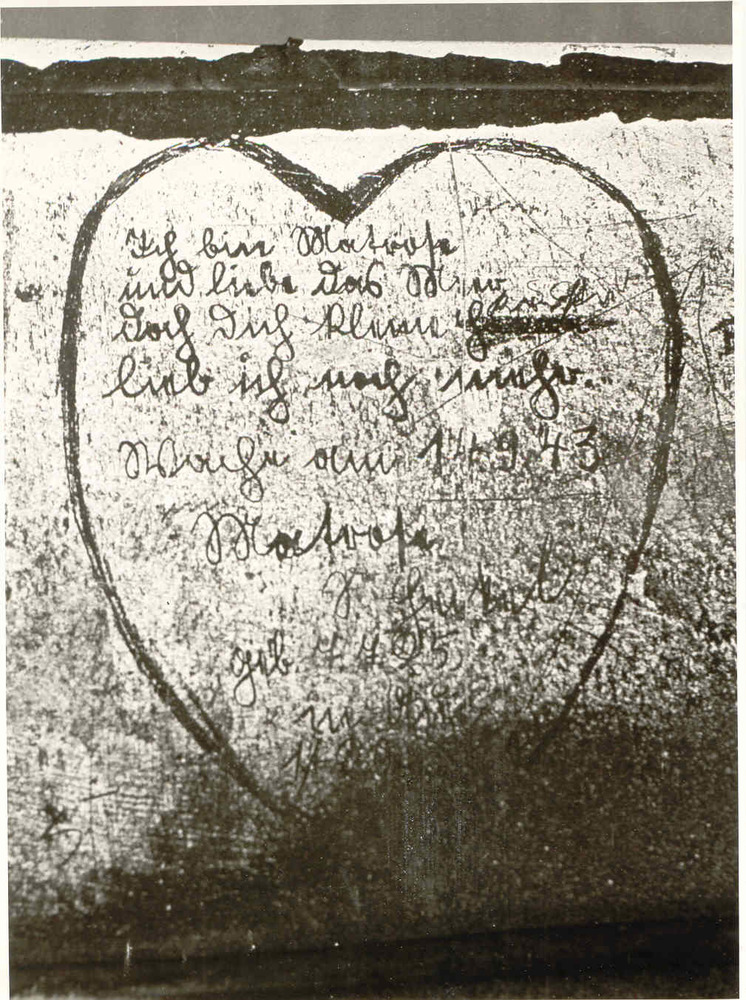 Ich bin Matrose
und liebe das Meer
doch dich kleine
lieb ich noch mehr.
Wache am 14.9.43
Matrose
geb.
in